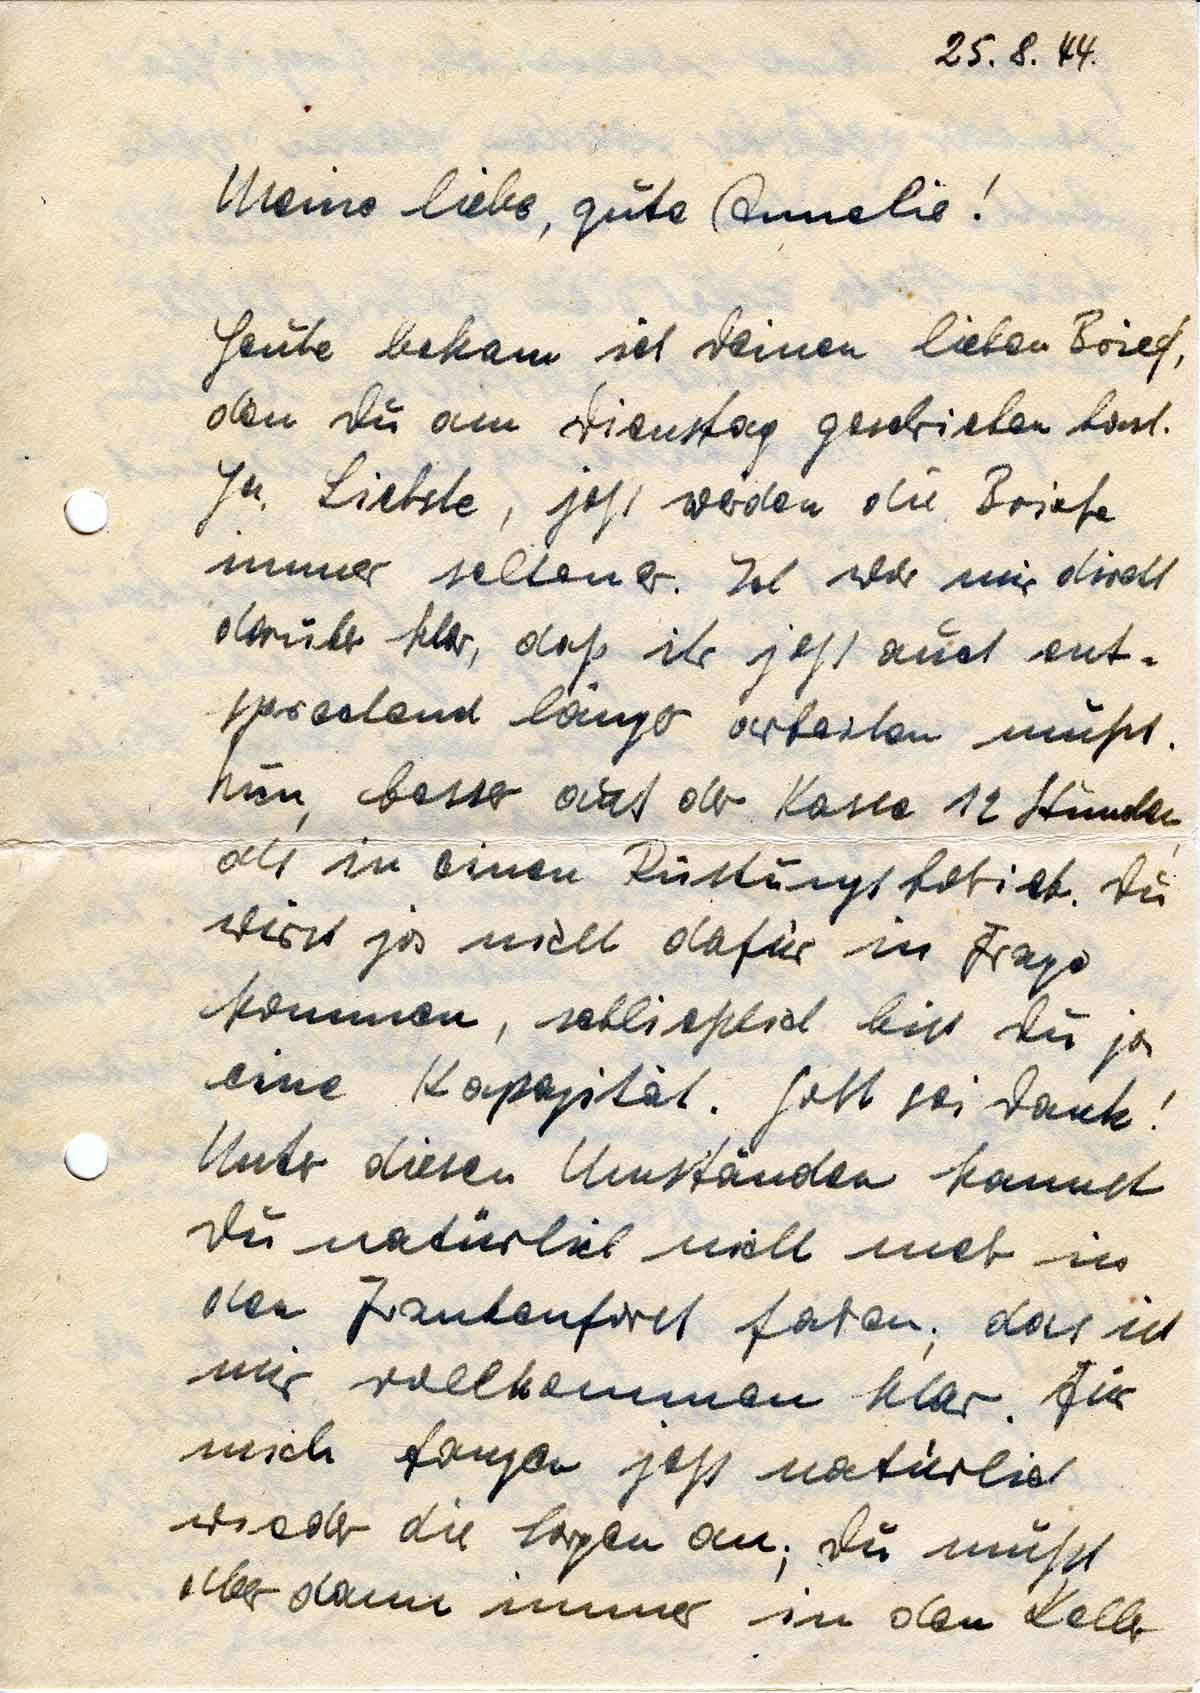 25. 8. 44.
Meine liebe, gute Annelie!
Heute bekam ich Deinen lieben Brief,
den Du am Dienstag geschrieben hast.
Ja, Liebste, jetzt werden die Briefe
immer seltener. Ich war mir direkt
darüber klar, daß ihr jetzt auch ent-
sprechend länger arbeiten müßt.
Nun, besser auf der Kasse 12 Stunden,
als in einen Rüstungsbetrieb. Du
wirst ja nicht dafür in Frage
kommen, schließlich bist Du ja
eine Kapazität. Gott sei Dank!
Unter diesen Umständen kannst
Du natürlich nicht mehr in
den Frankenforst fahren; das ist
mir vollkommen klar. Für
mich fangen jetzt natürlich
wieder die Sorgen an; Du mußt
aber dann immer in den Keller